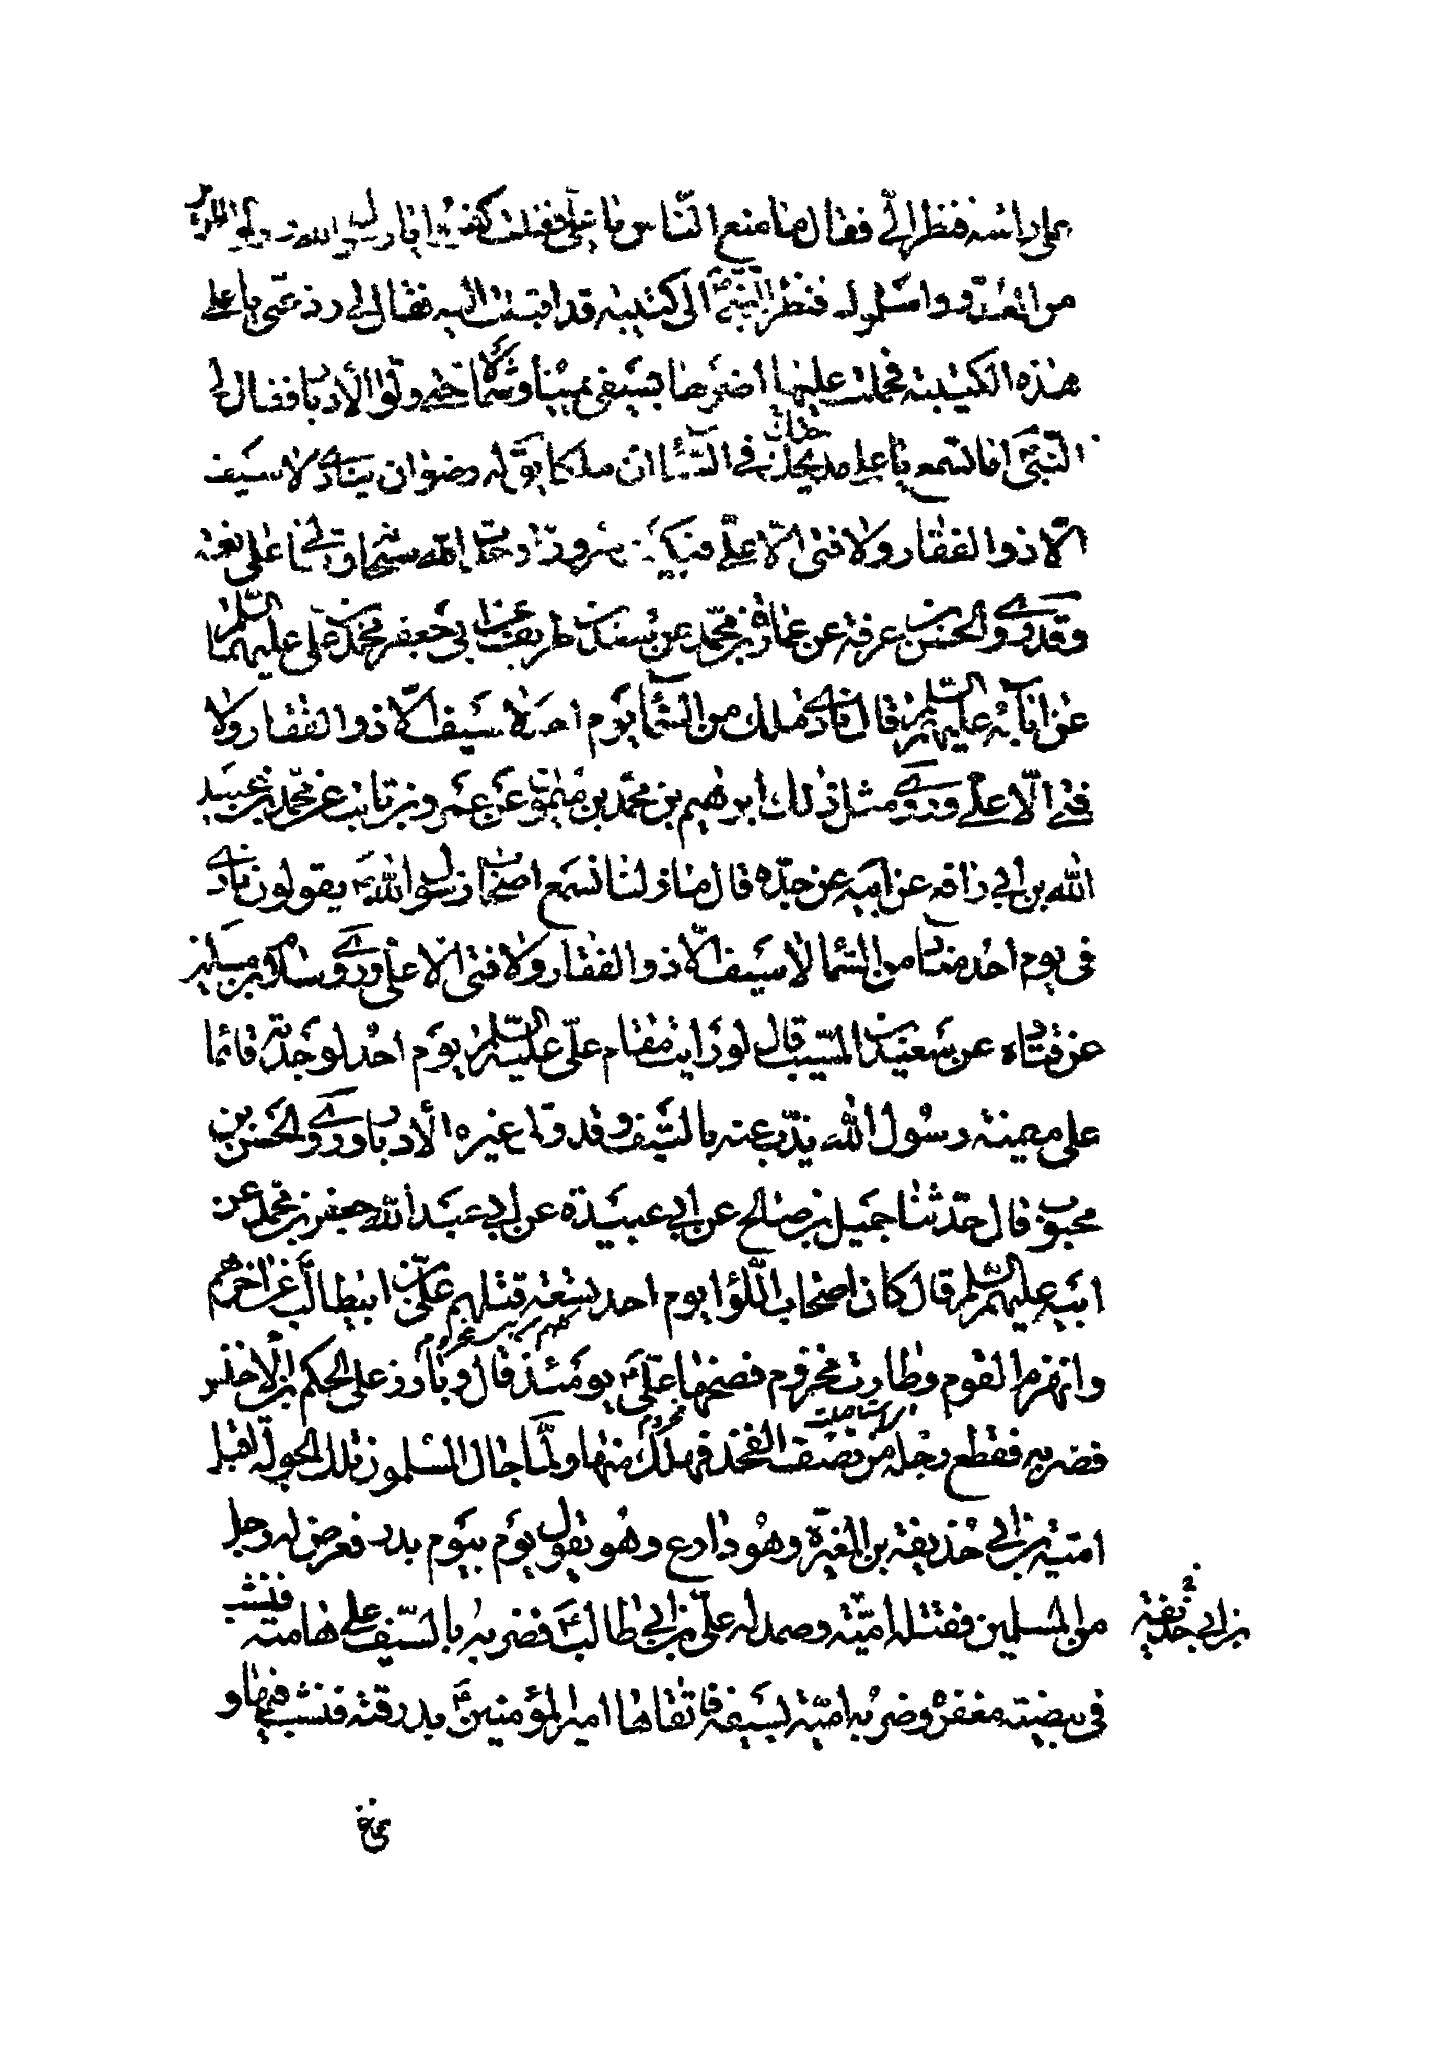 على رأسه فنظر إلي فقال ما صنع الناس يا علي فقلت كفروا يا رسول الله وولوا الدبر
من العدو وأسلموك فنظر النبي ص إلى كتيبة قد أقبلت إليه فقال لي رد عني يا علي
هذه الكتيبة فحملت عليها أضربها بسيفي يمينا وشمالا حتى ولوا الأدبار فقال لي
النبي ص أما تسمع يا علي مديحك في السماء إن ملكا يقال له رضوان ينادي لا سيف
إلا ذو الفقار ولا فتى إلا علي فبكيت سرورا وحمدت الله سبحانه وتعالى على نعمه
وقد روى الحسن بن عرفة عن عمارة بن محمد عن سعد بن طريف عن أبي جعفر محمد بن علي عليهما السلم
عن آبائه عليهم السلم قال نادى ملك من السماء يوم أحد لا سيف إلا ذو الفقار ولا
فتى إلا علي وروى مثل ذلك إبراهيم بن محمد بن ميمون عن عمرو بن ثابت عن محمد بن عبيد
الله بن أبي رافع عن أبيه عن جده قال ما زلنا نسمع أصحاب رسول الله ص يقولون نادى
في يوم أحد مناد من السماء لا سيف إلا ذو الفقار ولا فتى إلا علي وروى سلام بن مسكين
عن قتادة عن سعيد بن المسيب قال لو رأيت مقام علي عليه السلم يوم أحد لوجدته قائما
على ميمنة رسول الله يذب عنه بالسيف وقد ولى غيره الأدبار وروى الحسن بن
محبوب قال حدثنا جميل بن صالح عن أبي عبيدة عن أبي عبد الله جعفر بن محمد عن
أبيه عليهم السلم قال كان أصحاب اللواء يوم أحد تسعة قتلهم علي بن أبيطالب عن آخرهم
وانهزم القوم وطارت مخزوم فضحها علي ع يومئذ قال وبارز علي الحكم بن الأخنس
فضربه فقطع رجله من نصف الفخذ فهلك منها ولما جال المسلمون تلك الجولة أقبل
أمية بن أبي حذيفة بن المغيرة وهو دارع وهو يقول يوم بيوم بدر فعرض له رجل
من المسلمين فقتله أمية وصمد له علي بن أبي طالب ع فضربه بالسيف على هامته فنشب
بن أبي حذيفة
في بيضته مغفره وضربه أمية بسيفه فاتقاها أمير المؤمنين ع بدرقته فنشب فيها و